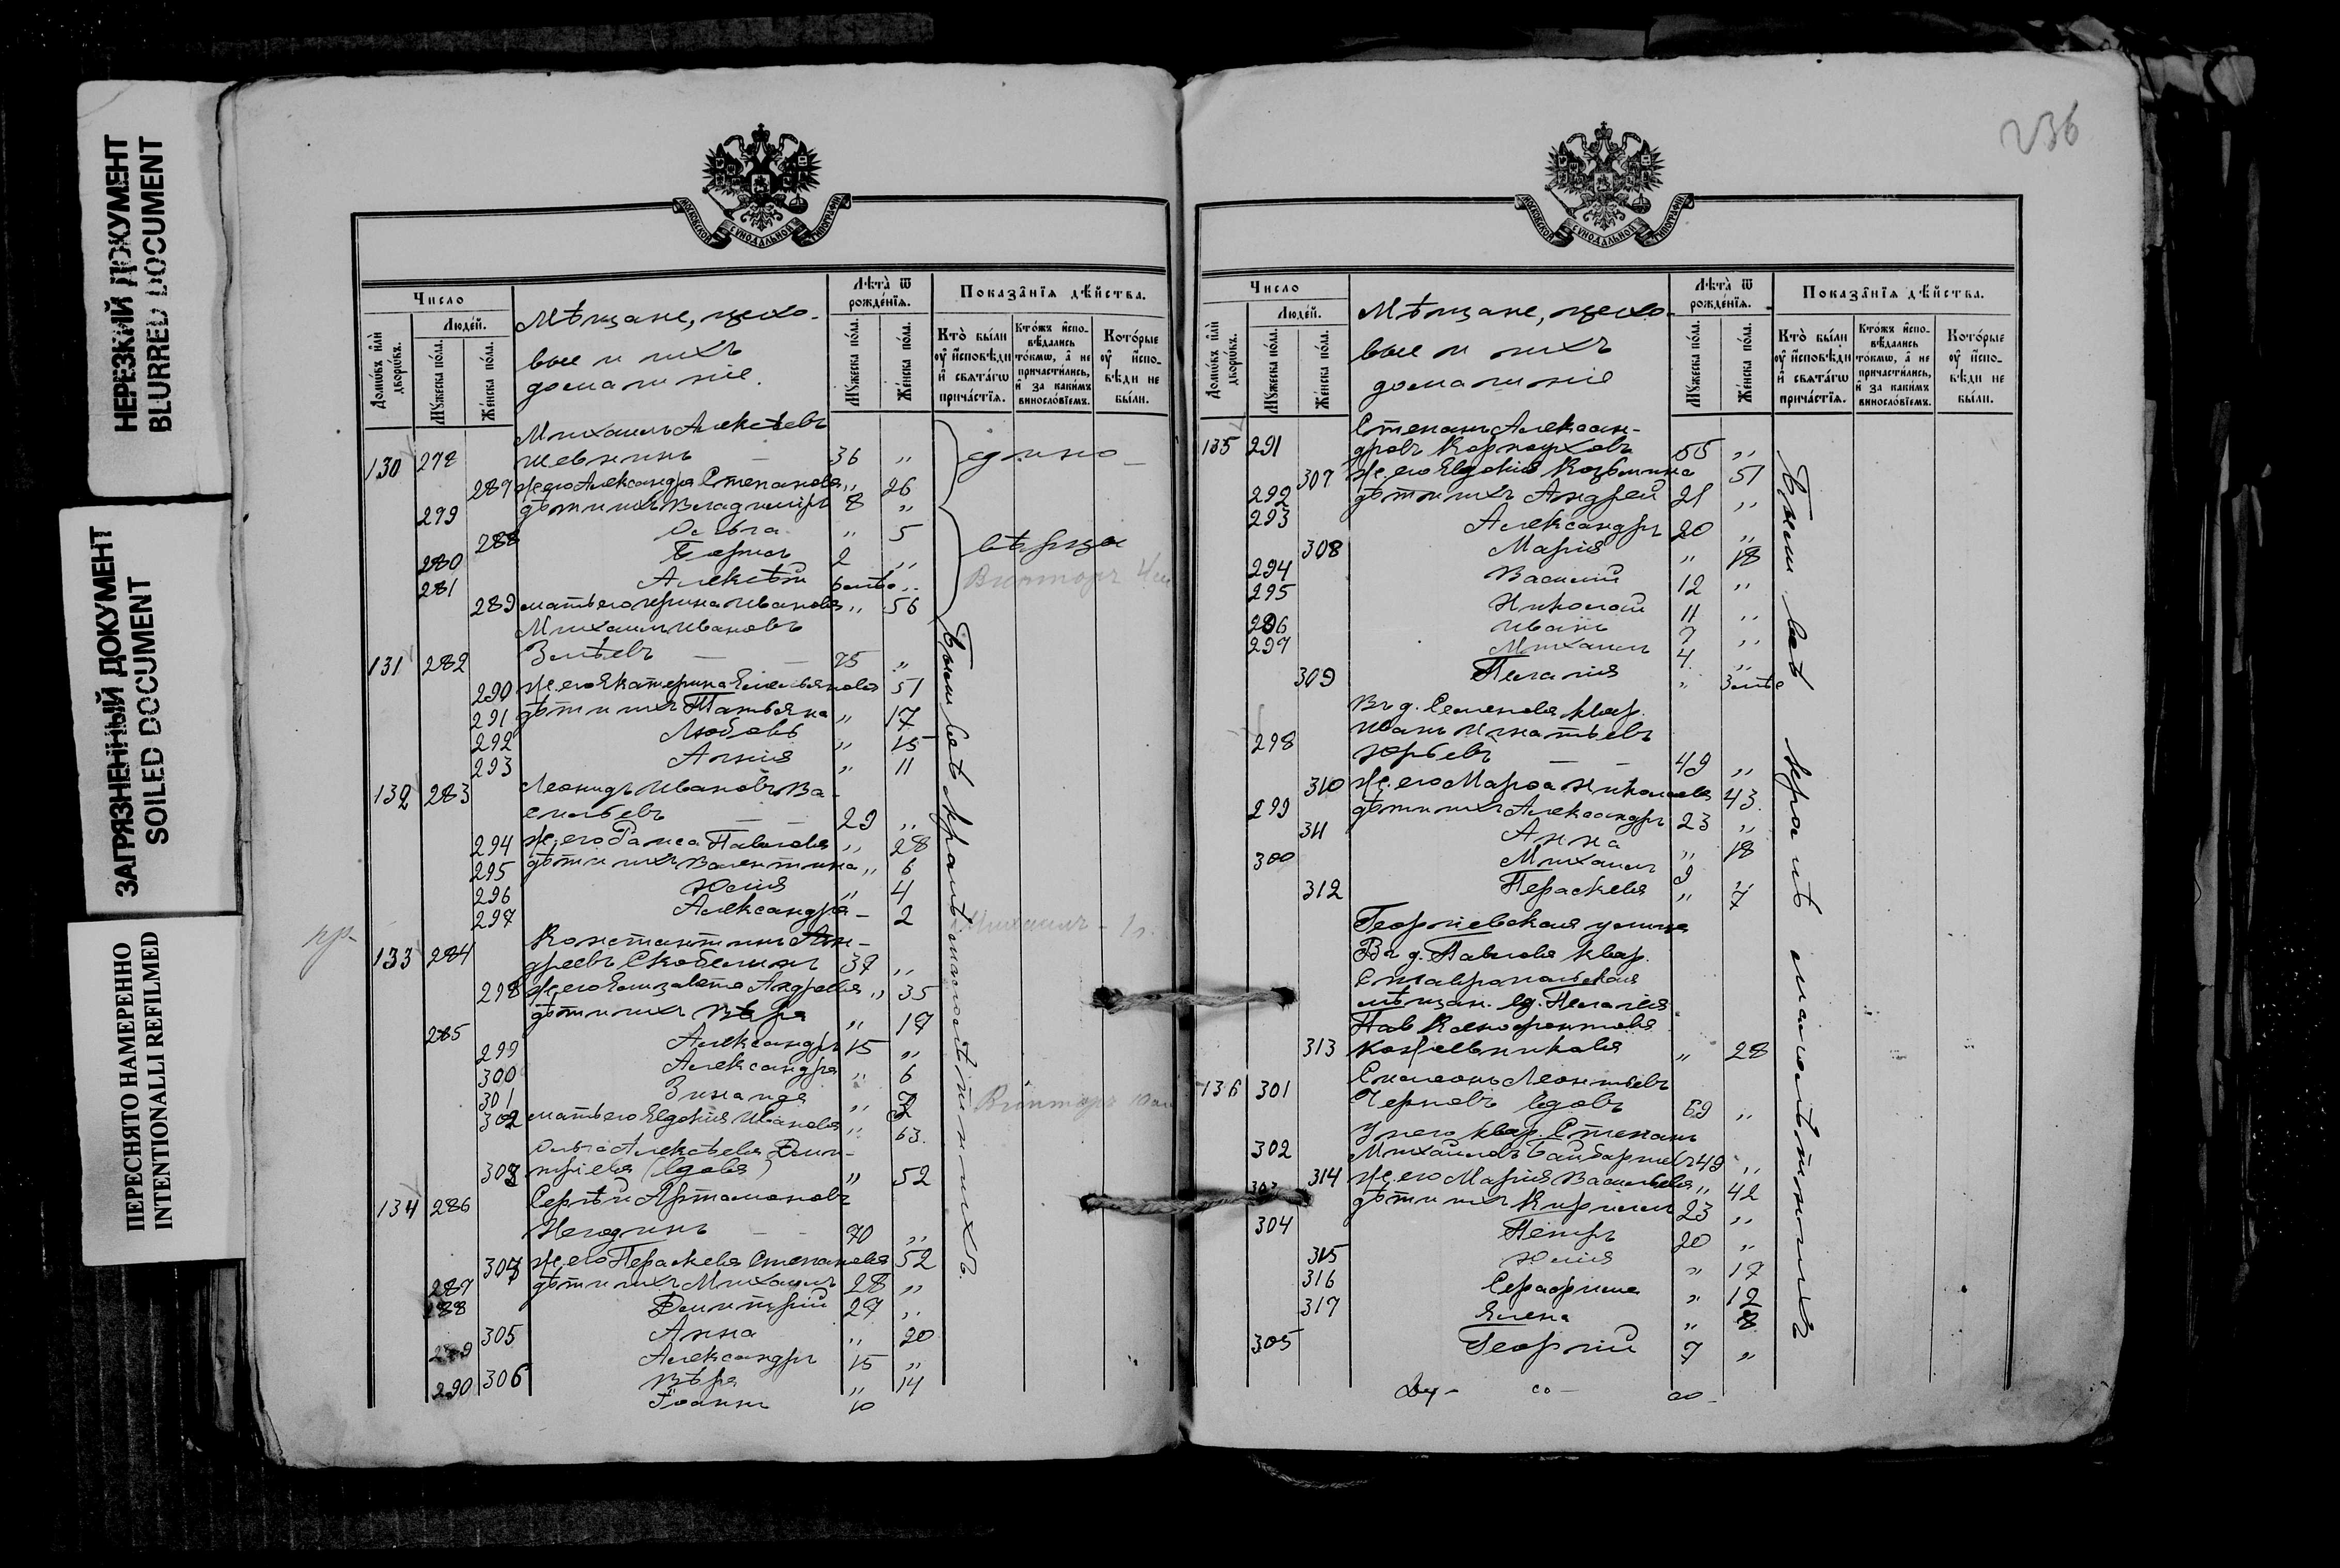 НЕРЕЗКИЙ ДОКУМЕНТ
BLURRED DOCUMENT
ЗАГРЯЗНЕННЫЙ ДОКУМЕНТ
SOILED DOCUMENT
ПЕРЕСНЯТО НАМЕРЕННО
INTENTIONALLI REFILMED
МОСКОВСКОЙ СѴНОДАЛЬНОЙ ТИПОГРАФІИ
Число
Людей.
Домѡвъ или дворѡвъ.
Мꙋжеска пола.
Женска пола.
Мѣщане, цехо-
вые и ихъ
домашніе.
Лѣта ѿ рожденїѧ.
Мꙋжеска пола.
Женска пола.
Показанїѧ дѣйства.
Кто были ᲂу҆ исповѣди и свѧтагѡ причастїѧ.
Ктожъ испо-вѣдались токмѡ, а не причастились, и за какимъ винословїемъ.
Которые ᲂу҆ испо-вѣди не были.
Михаилъ Алексѣевъ
130 278 Шевнинъ — 36 „
287 ж. его Александра Степанова „ 26
279 дѣти ихъ Владиміръ 8 „
288 Ольга „ 5
280 Борисъ 2 „
281 Алексѣй „
289 мать его Ирина Иванова „ 56
едино-
вѣрцы
Викторъ
Михаилъ Ивановъ
131 282 Зилѣевъ — — 75 „
290 ж. его Екатерина Емельянова 51
291 дѣти ихъ Татьяна „ 17
292 Любовь „ 15
293 Анна „ 11
132 283 Леонидъ Ивановъ Ва-
сильевъ — — 29 „
294 ж. его Раиса Павлова „ 28
295 дѣти ихъ Валентина „ 6
296 Юлія „ 4
297 Александра — 2
Михаилъ - 1 г.
Константинъ Ан-
133 284 дреевъ Скобелинъ 37 „
298 ж. его Елизавета Андреева „ 35
дѣти ихъ Вѣра „ 17
285 Александръ 15 „
299 Александра „ 6
300 Зинаида „
301
302 мать его Евдокія Иванова „ 63.
Викторъ
Ольга Алексѣева Дми-
303 тріева (вдова) „ 52
134 286 Сергѣй Артамоновъ
Негодинъ — — 70 „
ж. его Параскева Степанова 52
287 дѣти ихъ Михаилъ 28 „
288 Димитрій 27 „
305 Анна „ 20
289 Александръ 15 „
306 Вѣра „ 14
290 Іоаннъ 10
Были всѣ кромѣ малолѣтнихъ.
236
МОСКОВСКОЙ СѴНОДАЛЬНОЙ ТИПОГРАФІИ
Число
Людей.
Домѡвъ или дворѡвъ.
Мꙋжеска пола.
Женска пола.
Мѣщане, цехо-
вые и ихъ
домашніе
Лѣта ѿ рожденїѧ.
Мꙋжеска пола.
Женска пола.
Показанїѧ дѣйства.
Кто были ᲂу҆ исповѣди и свѧтагѡ причастїѧ.
Ктожъ испо-вѣдались токмѡ, а не причастились, и за какимъ винословїемъ.
Которые ᲂу҆ испо-вѣди не были.
Степанъ Алексан-
135 291 дровъ Карпуховъ 55 „
307 ж. его Евдокія Козьмина 51
292 дѣти ихъ Андрей 21 „
293 Александръ 20 „
308 Марія „ 18
294 Василій 12 „
295 Николай 11 „
296 Иванъ 7 „
297 Михаилъ 4 „
309 Пелагія „
Въ д. Семенова квар.
298 Иванъ Игнатьевъ
Юрьевъ — — 49 „
310 ж. его Марѳа Николаева 43
299 дѣти ихъ Александръ 23 „
311 Анна „ 18
300 Михаилъ 9 „
312 Параскева „ 7
Георгіевская улица
Въ д. Павлова квар.
Ставропольская
мѣщан. вд. Пелагія
Пав Ксенофонтова
313 Кожевникова „ 28
136 301 Симеонъ Леонтьевъ
Черновъ вдовъ 69 „
У него квар. Степанъ
302 Михайловъ 49 „
314 ж. его Марія Васильева „ 42
303 дѣти ихъ Кириллъ 23 „
304 Петръ 20 „
315 Юлія „ 17
316 Серафима „ 12
317 Елена „ 8
305 Георгій 7 „
Были всѣ кромѣ малолѣтнихъ